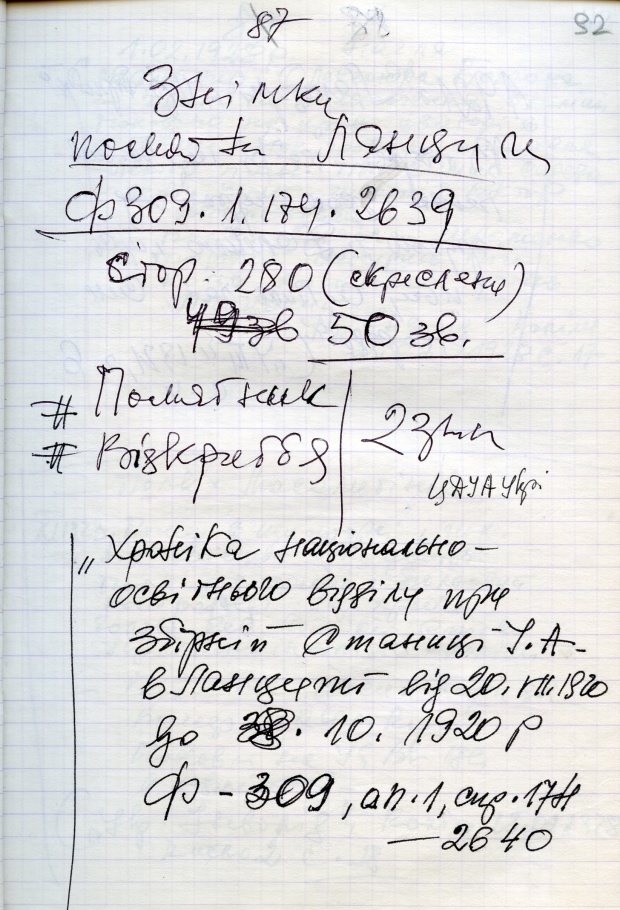 87 92
Знімки
пам'ятн Ланцут
Ф 309.1.174.2639
Стор. 280 (скреслене)
49зв 50 зв.
# Пам'ятник
# Відкриття
2 знім
ЦДАУкрі
„Хроніка національно-
освітнього відділу при
Збірній Станиці У.А-
в Ланцуті від 20.VII.1920
до . 10. 1920 р
Ф - 309, оп. 1, спр. 174
— 2640